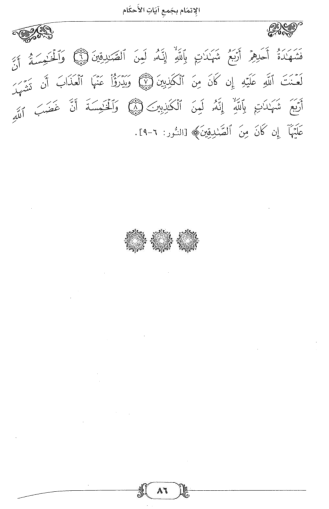 الإتمام بجمع آيات الأحكام
فَشَهَٰدَةُ أَحَدِهِمْ أَرْبَعُ شَهَٰدَٰتٍۭ بِٱللَّهِ إِنَّهُۥ لَمِنَ ٱلصَّٰدِقِينَ ٦ وَٱلْخَٰمِسَةُ أَنَّ
لَعْنَتَ ٱللَّهِ عَلَيْهِ إِن كَانَ مِنَ ٱلْكَٰذِبِينَ ٧ وَيَدْرَؤُا۟ عَنْهَا ٱلْعَذَابَ أَن تَشْهَدَ
أَرْبَعَ شَهَٰدَٰتٍۭ بِٱللَّهِ إِنَّهُۥ لَمِنَ ٱلْكَٰذِبِينَ ٨ وَٱلْخَٰمِسَةَ أَنَّ غَضَبَ ٱللَّهِ
عَلَيْهَآ إِن كَانَ مِنَ ٱلصَّٰدِقِينَ﴾ [النُّور: ٦-٩].
٨٦